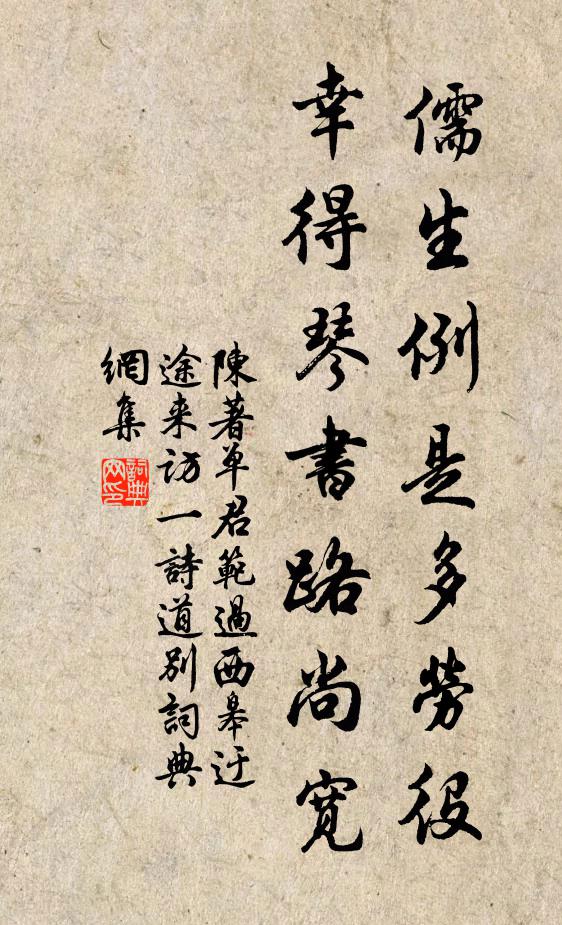 儒生例是多勞役
幸得琴書路尚寬
陳著單君範過西皋迂
途来訪一詩道別詞典
網集
詞典網印